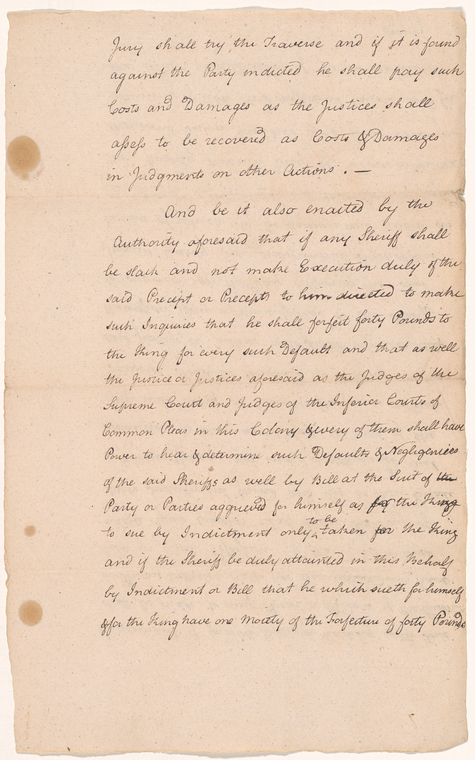 Jury shall try the Traverse and if it is found
against the Party indicted he shall pay such
Costs and Damages as the Justices shall
assess to be recovered as Costs & Damages
in Judgments on other Actions. —
And be it also enacted by the
Authority aforesaid that if any Sheriff shall
be slack and not make Execution duly of the
said Precept or Precepts to him directed to make
such Inquiries that he shall forfeit forty Pounds to
the King for every such Default and that as well
the Justice or Justices aforesaid as the Judges of the
Supreme Court and Judges of the Inferior Courts of
Common Pleas in this Colony & every of them shall have
Power to hear & determine such Defaults & Negligencies
of the said Sheriffs as well by Bill at the Suit of the
Party or Parties aggrieved for himself as for the King
to sue by Indictment only to be taken for the King
and if the Sheriff be duly attainted in this Behalf
by Indictment or Bill that he which sueth for himself
& for the King have one Moiety of the Forfeiture of forty Pounds